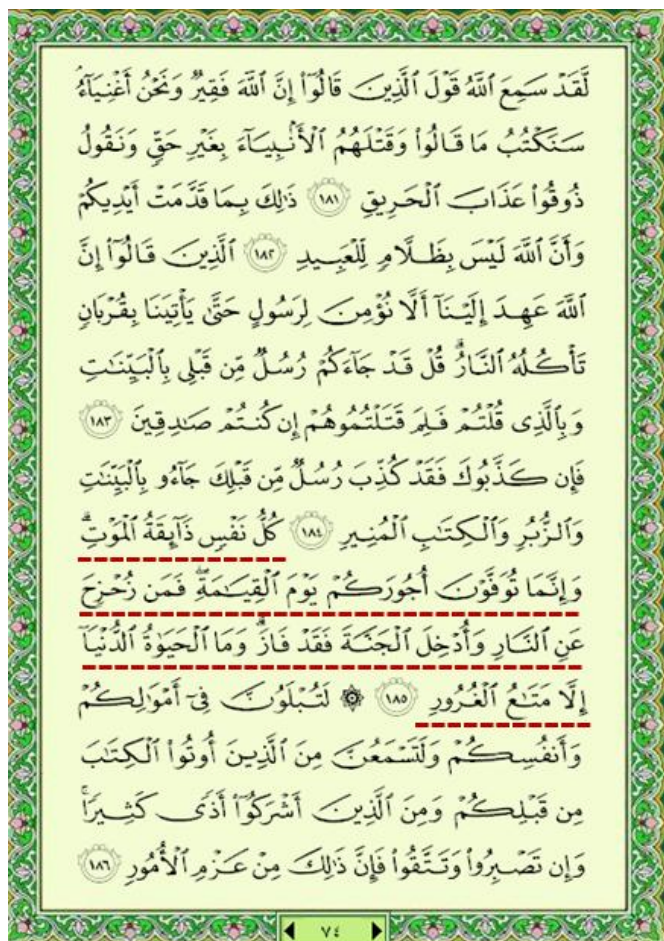 لَّقَدْ سَمِعَ ٱللَّهُ قَوْلَ ٱلَّذِينَ قَالُوٓا۟ إِنَّ ٱللَّهَ فَقِيرٌ وَنَحْنُ أَغْنِيَآءُ
سَنَكْتُبُ مَا قَالُوا۟ وَقَتْلَهُمُ ٱلْأَنۢبِيَآءَ بِغَيْرِ حَقٍّ وَنَقُولُ
ذُوقُوا۟ عَذَابَ ٱلْحَرِيقِ ١٨١ ذَٰلِكَ بِمَا قَدَّمَتْ أَيْدِيكُمْ
وَأَنَّ ٱللَّهَ لَيْسَ بِظَلَّامٍ لِّلْعَبِيدِ ١٨٢ ٱلَّذِينَ قَالُوٓا۟ إِنَّ
ٱللَّهَ عَهِدَ إِلَيْنَآ أَلَّا نُؤْمِنَ لِرَسُولٍ حَتَّىٰ يَأْتِيَنَا بِقُرْبَانٍ
تَأْكُلُهُ ٱلنَّارُ ۗ قُلْ قَدْ جَآءَكُمْ رُسُلٌ مِّن قَبْلِى بِٱلْبَيِّنَٰتِ
وَبِٱلَّذِى قُلْتُمْ فَلِمَ قَتَلْتُمُوهُمْ إِن كُنتُمْ صَٰدِقِينَ ١٨٣
فَإِن كَذَّبُوكَ فَقَدْ كُذِّبَ رُسُلٌ مِّن قَبْلِكَ جَآءُو بِٱلْبَيِّنَٰتِ
وَٱلزُّبُرِ وَٱلْكِتَٰبِ ٱلْمُنِيرِ ١٨٤ كُلُّ نَفْسٍ ذَآئِقَةُ ٱلْمَوْتِ ۗ
وَإِنَّمَا تُوَفَّوْنَ أُجُورَكُمْ يَوْمَ ٱلْقِيَٰمَةِ ۖ فَمَن زُحْزِحَ
عَنِ ٱلنَّارِ وَأُدْخِلَ ٱلْجَنَّةَ فَقَدْ فَازَ ۗ وَمَا ٱلْحَيَوٰةُ ٱلدُّنْيَآ
إِلَّا مَتَٰعُ ٱلْغُرُورِ ١٨٥ ۞ لَتُبْلَوُنَّ فِىٓ أَمْوَٰلِكُمْ
وَأَنفُسِكُمْ وَلَتَسْمَعُنَّ مِنَ ٱلَّذِينَ أُوتُوا۟ ٱلْكِتَٰبَ
مِن قَبْلِكُمْ وَمِنَ ٱلَّذِينَ أَشْرَكُوٓا۟ أَذًى كَثِيرًا ۚ
وَإِن تَصْبِرُوا۟ وَتَتَّقُوا۟ فَإِنَّ ذَٰلِكَ مِنْ عَزْمِ ٱلْأُمُورِ ١٨٦
٧٤